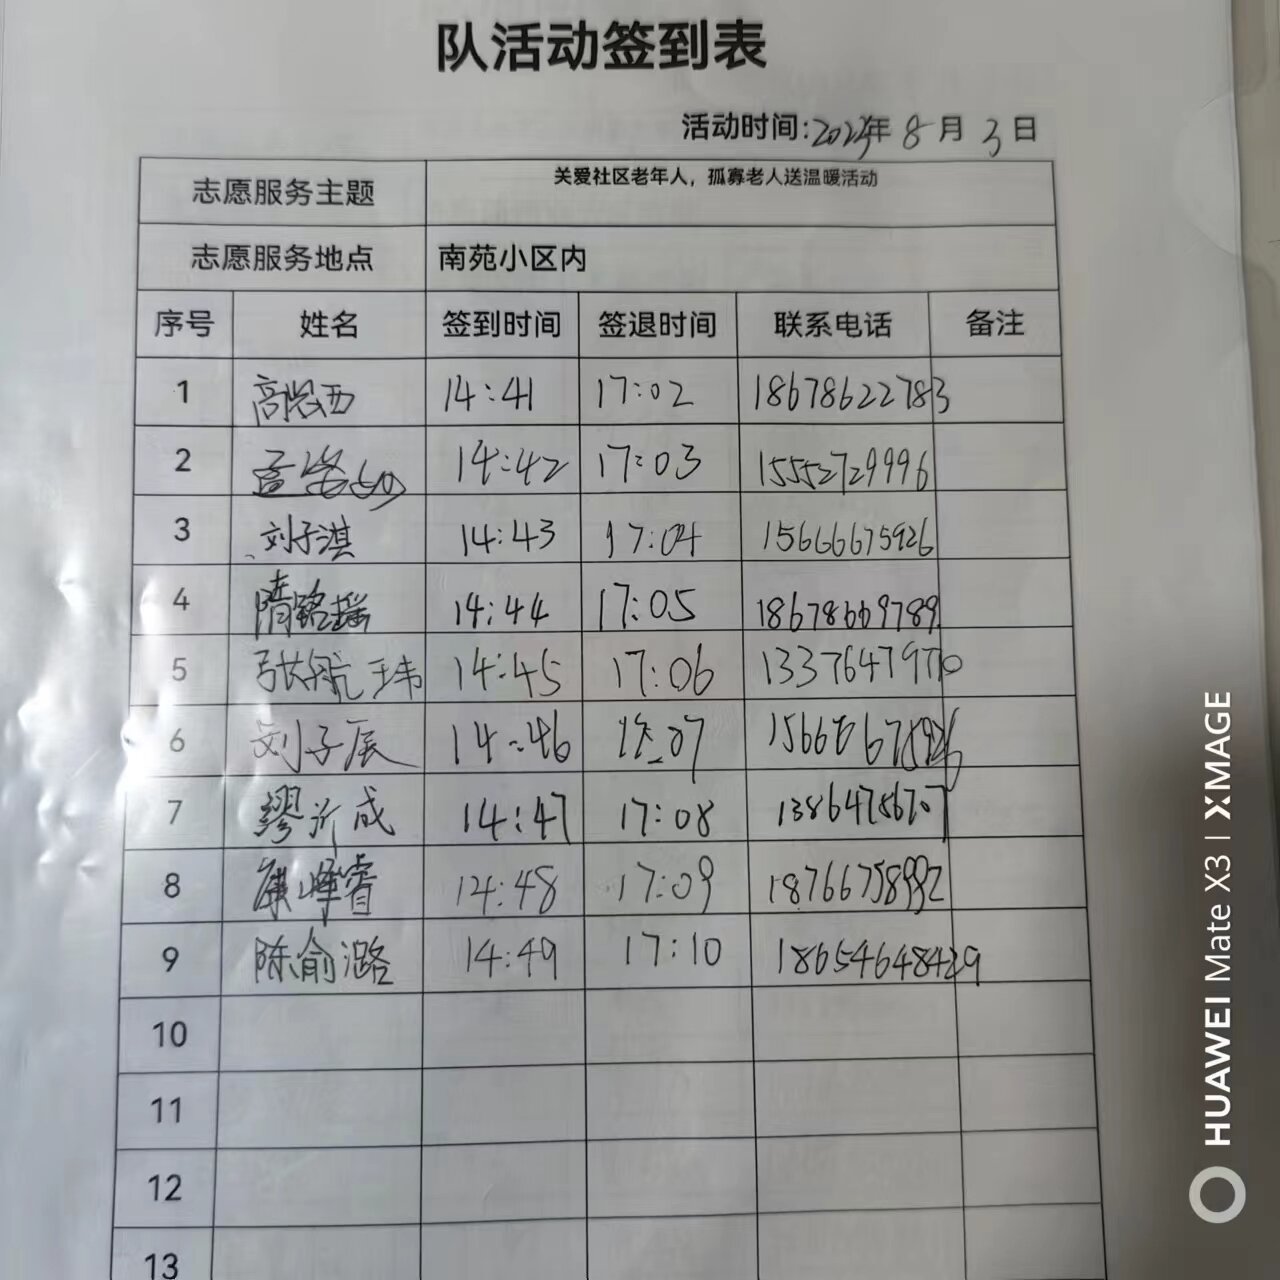 队活动签到表
活动时间: 年 8 月 3 日
志愿服务主题 关爱社区老年人，孤寡老人送温暖活动
志愿服务地点 南苑小区内
序号 姓名 签到时间 签退时间 联系电话 备注
1 14:41 17:02 18678622783
2 14:42 17:03 15552729996
3 刘子淇 14:43 17:04 15666675926
4 14:44 17:05
5 张航玮 14:45 17:06
6 刘子辰 14:46
7 缪沂成 14:47 17:08
8 14:48 17:09
9 陈俞潞 14:49 17:10 18654648429
10
11
12
13
HUAWEI Mate X3 | XMAGE